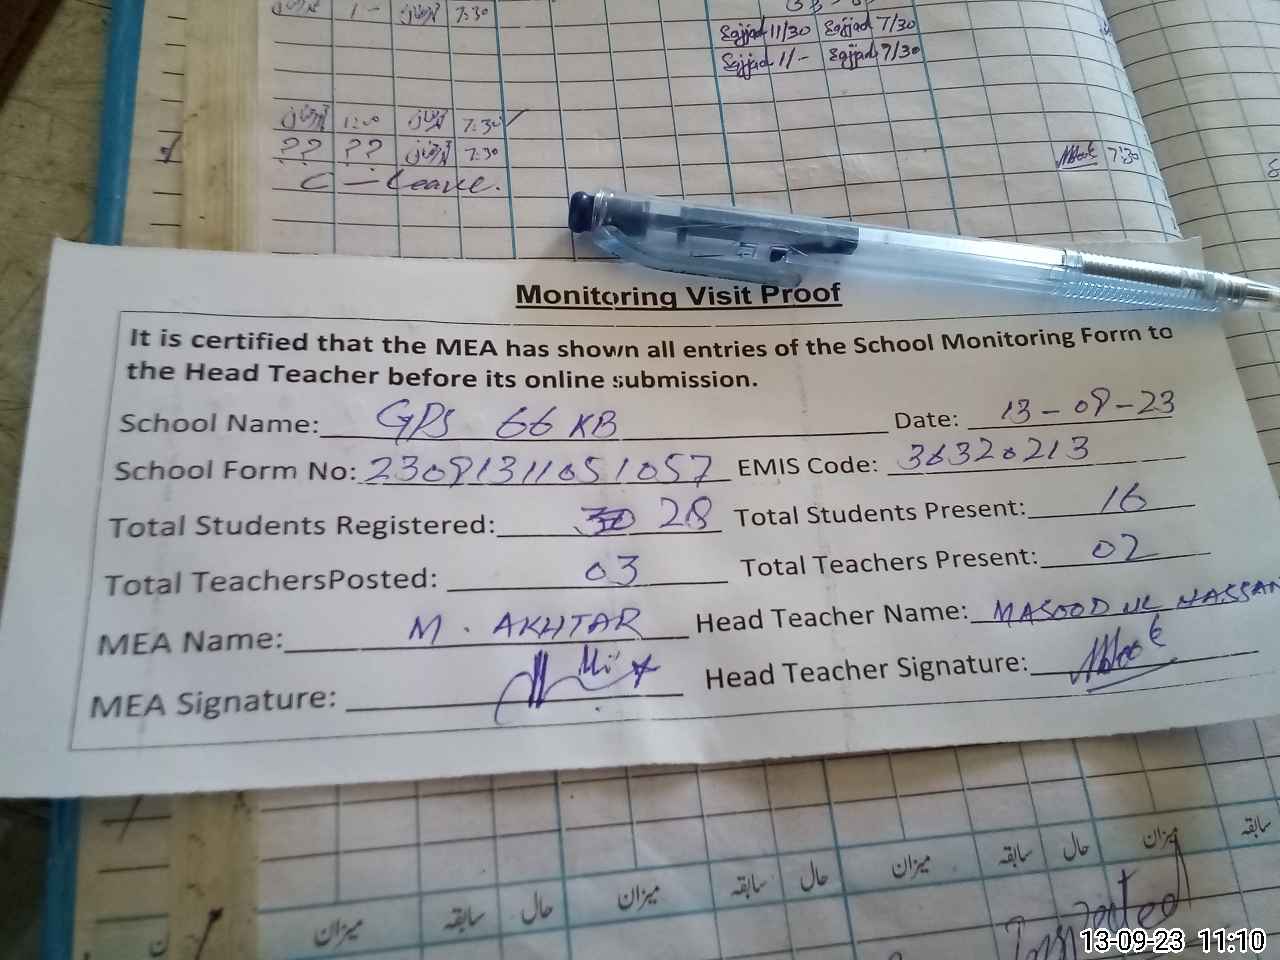 1 - 7:30
Sajjad 11/30 Sajjad 7/30
Sajjad 11/- Sajjad 7/30
1:00 7:30
?? ?? 7:30
7:30
C - Leave.
Monitoring Visit Proof
It is certified that the MEA has shown all entries of the School Monitoring Form to
the Head Teacher before its online submission.
School Name: GPS 66 KB Date: 13-09-23
School Form No: 23091311051057 EMIS Code: 36320213
Total Students Registered: 28 Total Students Present: 16
Total TeachersPosted: 03 Total Teachers Present: 02
MEA Name: M. AKHTAR Head Teacher Name: MASOOD UL HASSAN
MEA Signature: Head Teacher Signature:
سابقہ میزان حال سابقہ میزان حال سابقہ میزان حال سابقہ میزان
Inspected
13-09-23 11:10